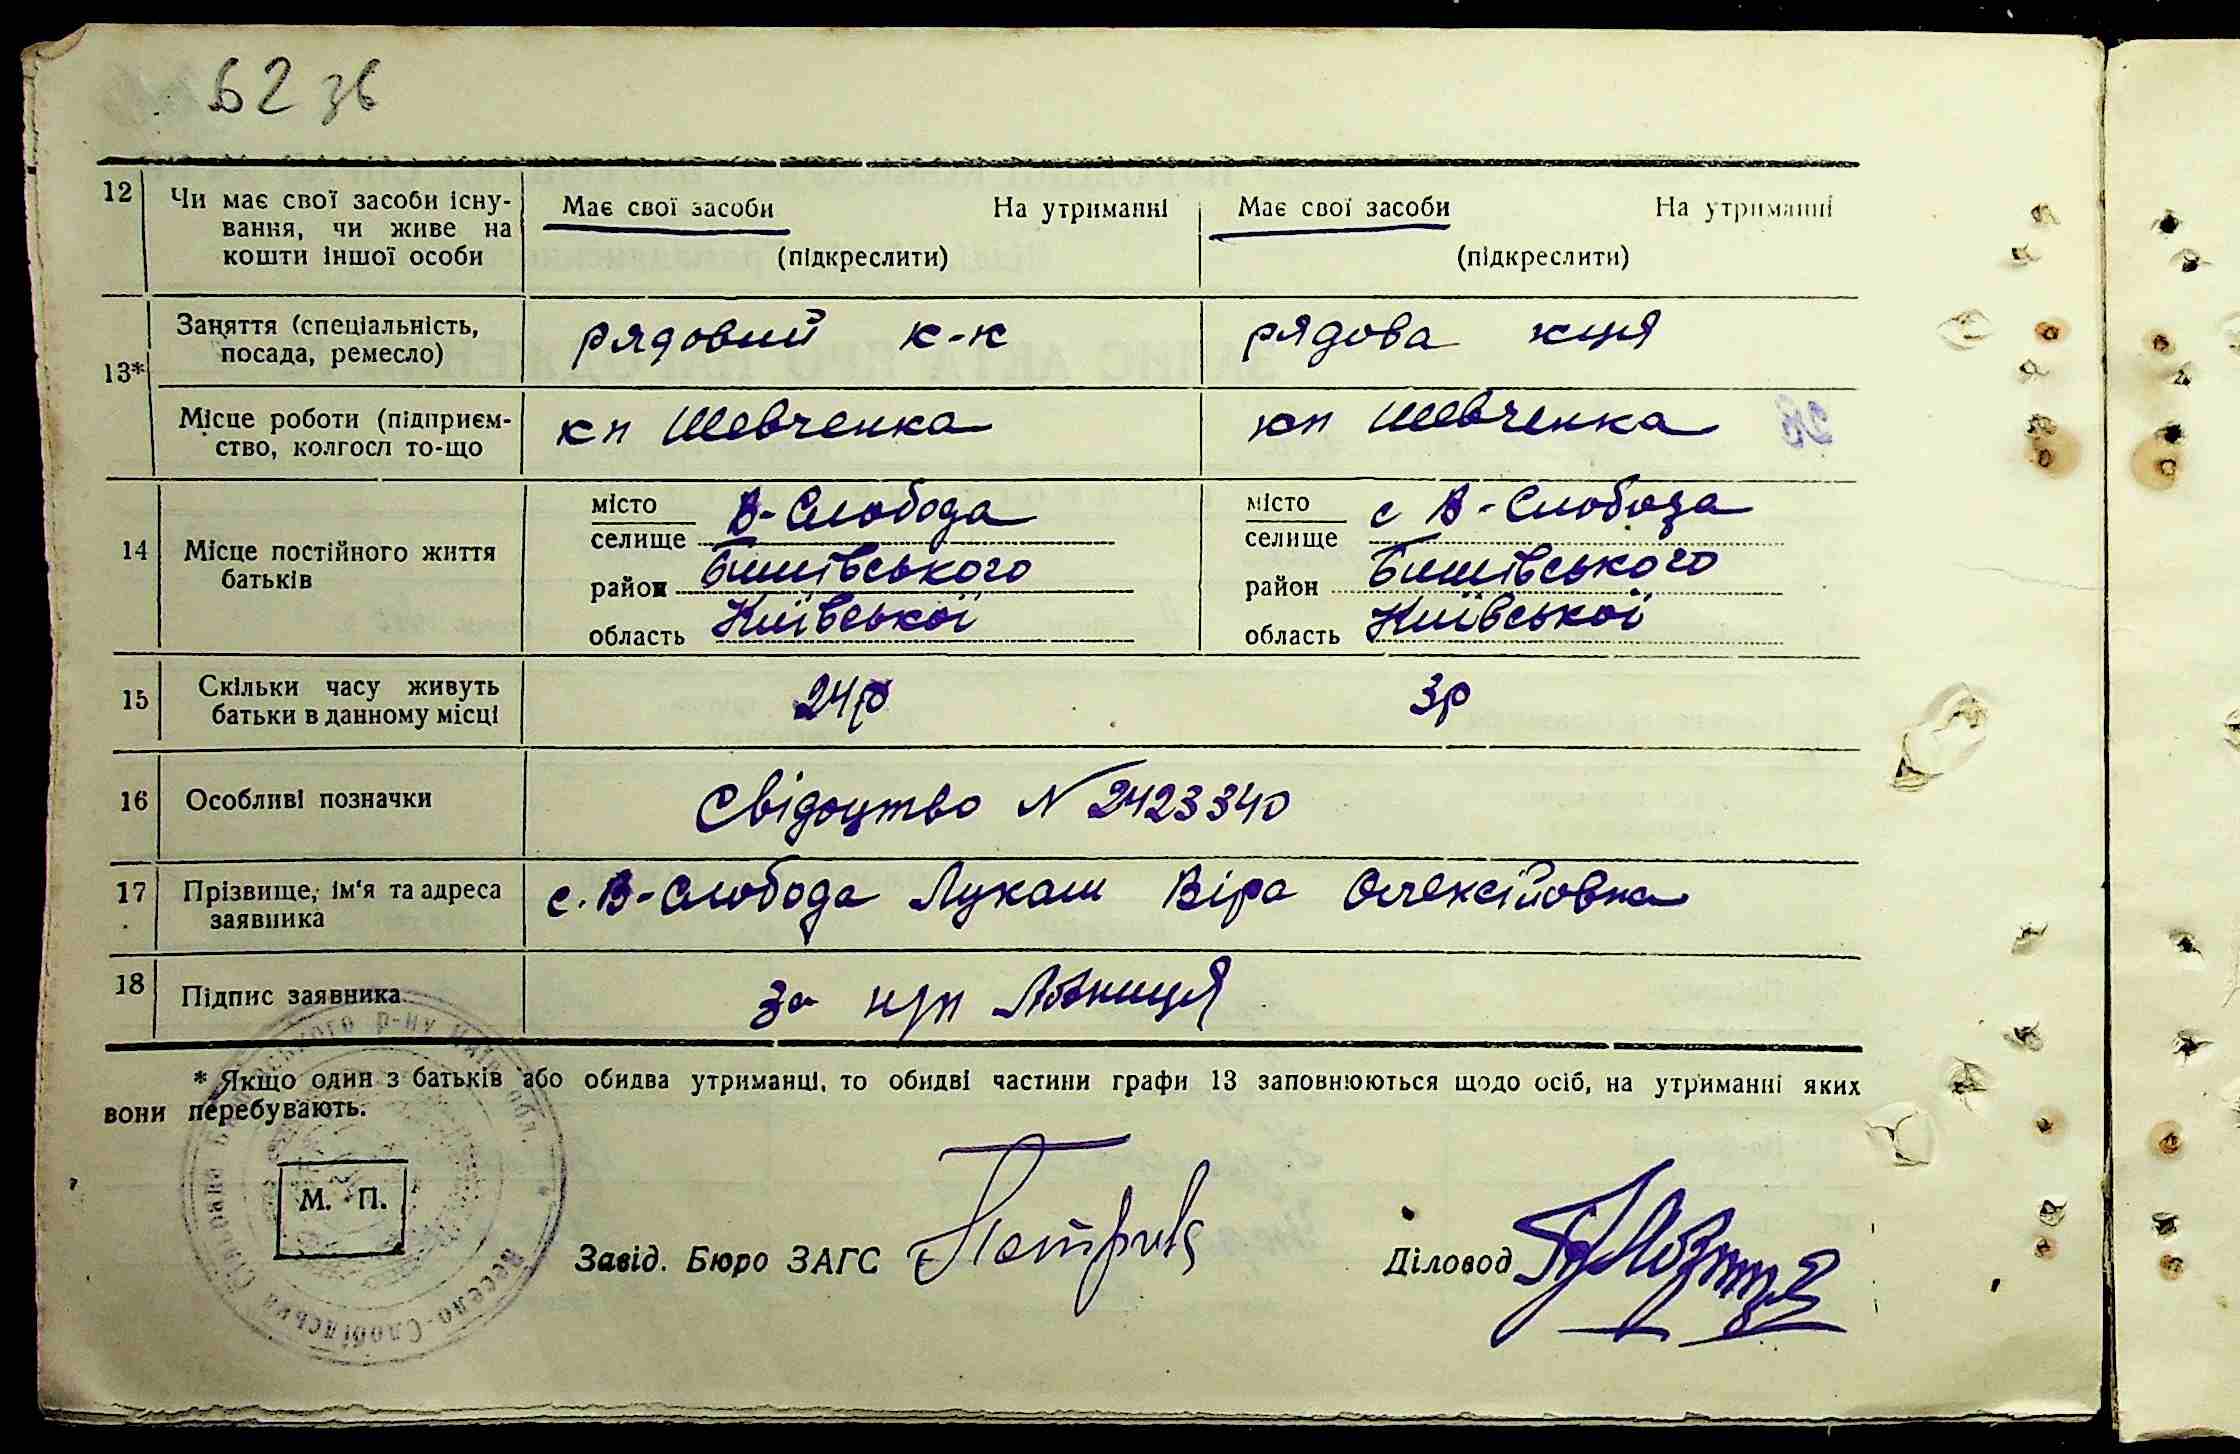 62 зв
12 Чи має свої засоби існу-
вання, чи живе на
кошти іншої особи
Має свої засоби На утриманні
(підкреслити)
Має свої засоби На утриманні
(підкреслити)
13*
Заняття (спеціальність,
посада, ремесло)
рядовий к-к
рядова кця
Місце роботи (підприєм-
ство, колгосп то-що
кп Шевченка
кп Шевченка
14 Місце постійного життя
батьків
місто
селище В-Слобода
район Бишівського
область Київської
місто
селище с В-Слобода
район Бишівського
область Київської
15 Скільки часу живуть
батьки в данному місці
24р
3р
16 Особливі позначки
Свідоцтво N 2423340
17 Прізвище, ім'я та адреса
заявника
с. В-Слобода Лукаш Віра Олексійовна
18 Підпис заявника
за
* Якщо один з батьків або обидва утриманці, то обидві частини графи 13 заповнюються щодо осіб, на утриманні яких
вони перебувають.
М. П.
Завід. Бюро ЗАГС
Діловод
Весело-Слобідська